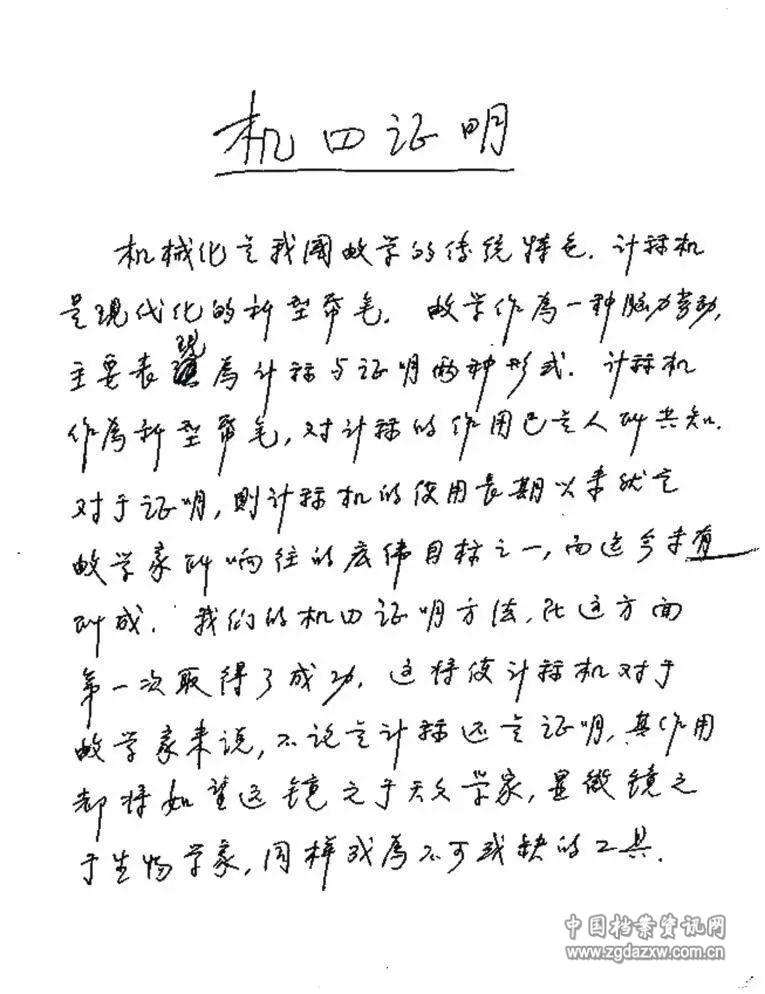 机器证明
机械化是我國数学的传统特色. 计算机
是现代化的新型. 数学作為一种脑力劳动,
主要表现為计算与证明两种形式. 计算机
作為新型, 对计算的作用已是人所共知.
对于证明, 则计算机的使用長期以来就是
数学家所响往的宏伟目标之一, 而迄今未有
所成. 我们的机器证明方法, 在这方面
第一次取得了成功. 这将使计算机对于
数学家来说, 不论是计算还是证明, 其作用
都将如望远镜之于天文学家, 显微镜之
于生物学家, 同样成為不可或缺的工具.
中国档案资讯网
www.zgdazxw.com.cn